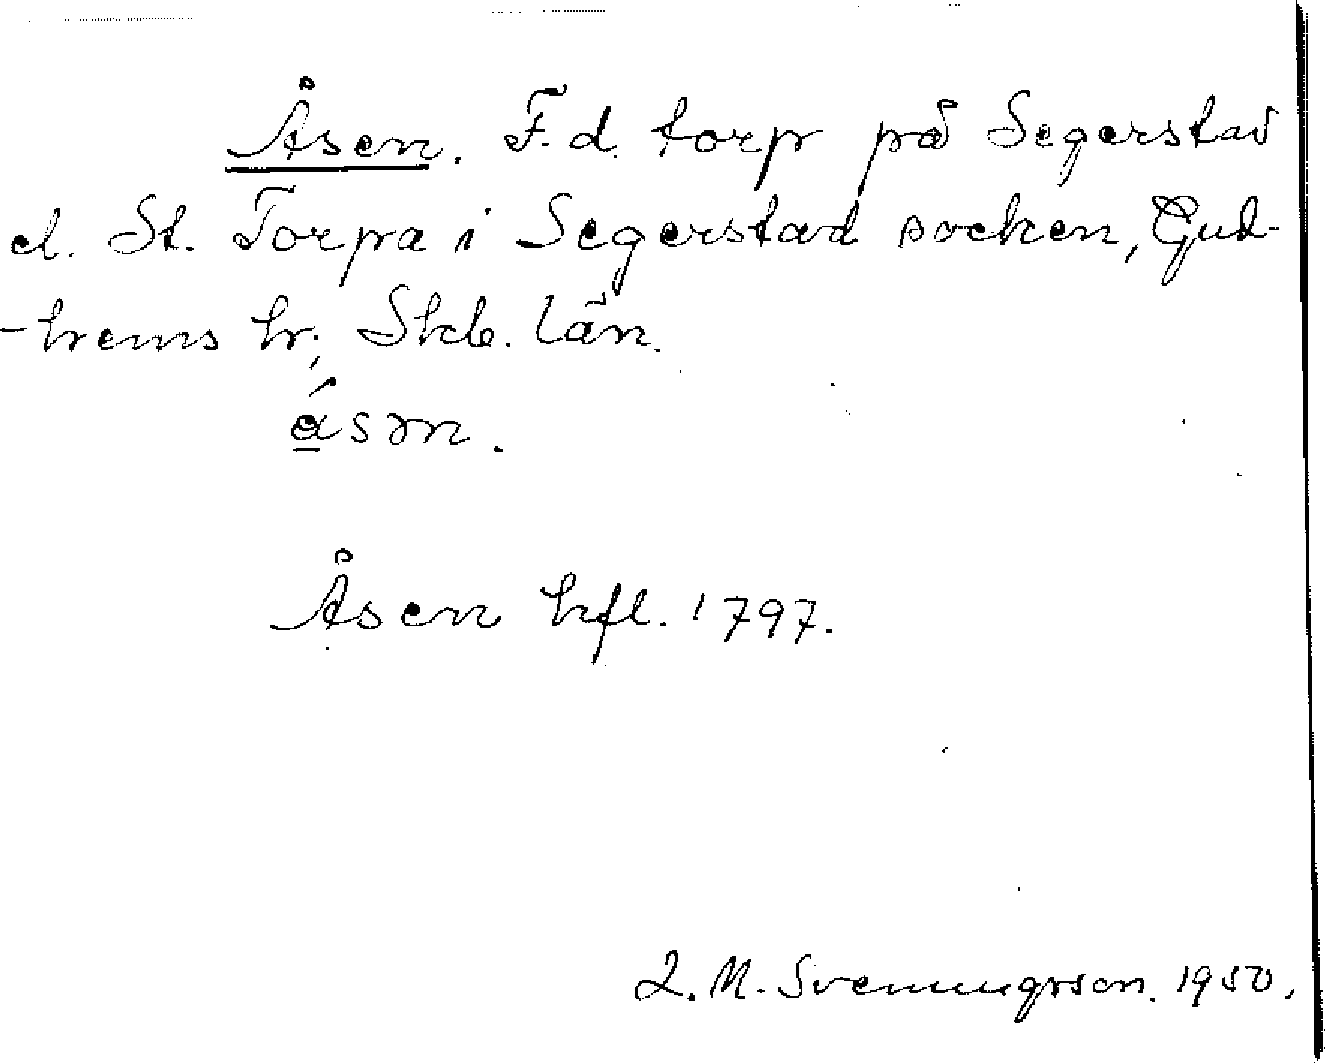 Åsen. F.d. torp på Segerstad
el. St. Torpa i Segerstad socken, Gud-
-hems hr, Skb. län.
ásən.
Åsen hfl. 1797.
J. M. Svenungsson. 1950.